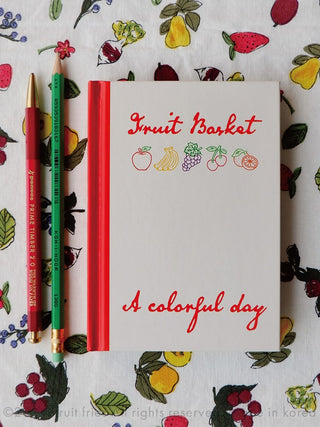 Fruit Basket
A colorful day
PRIME TIMBER 2.0
KOH-I-NOOR
fruit fri
all rights reserved
in korea